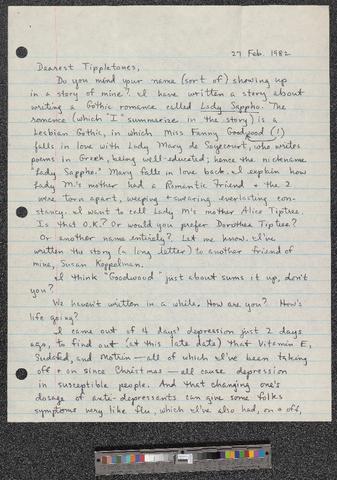 27 Feb. 1982
Dearest Tippletones,
Do you mind your name (sort of) showing up
in a story of mine? I have written a story about
writing a Gothic romance called Lady Sappho. The
romance (which "I" summarize in the story) is a
Lesbian Gothic, in which Miss Fanny Goodwood (!)
falls in love with Lady Mary de Saycourt, who writes
poems in Greek, being well-educated; hence the nickname
"Lady Sappho." Mary falls in love back. I explain how
Lady M.'s mother had a Romantic Friend & the 2
were torn apart, weeping & swearing everlasting con-
stancy. I want to call Lady M's mother Alice Tiptree.
Is that O.K.? Or would you prefer Dorothea Tiptoe?
Or another name entirely? Let me know. I've
written the story (a long letter) to another friend of
mine, Susan Koppelman.
I think "Goodwood" just about sums it up, don't
you?
We haven't written in a while. How are you? How's
life going?
I came out of 4 days' depression just 2 days
ago, to find out (at this late date) that Vitamin E,
Sudafed, and Motrin — all of which I've been taking
off & on since Christmas — all cause depression
in susceptible people. And that changing one's
dosage of anti-depressants can give some folks
symptoms very like flu, which I've also had, on & off,